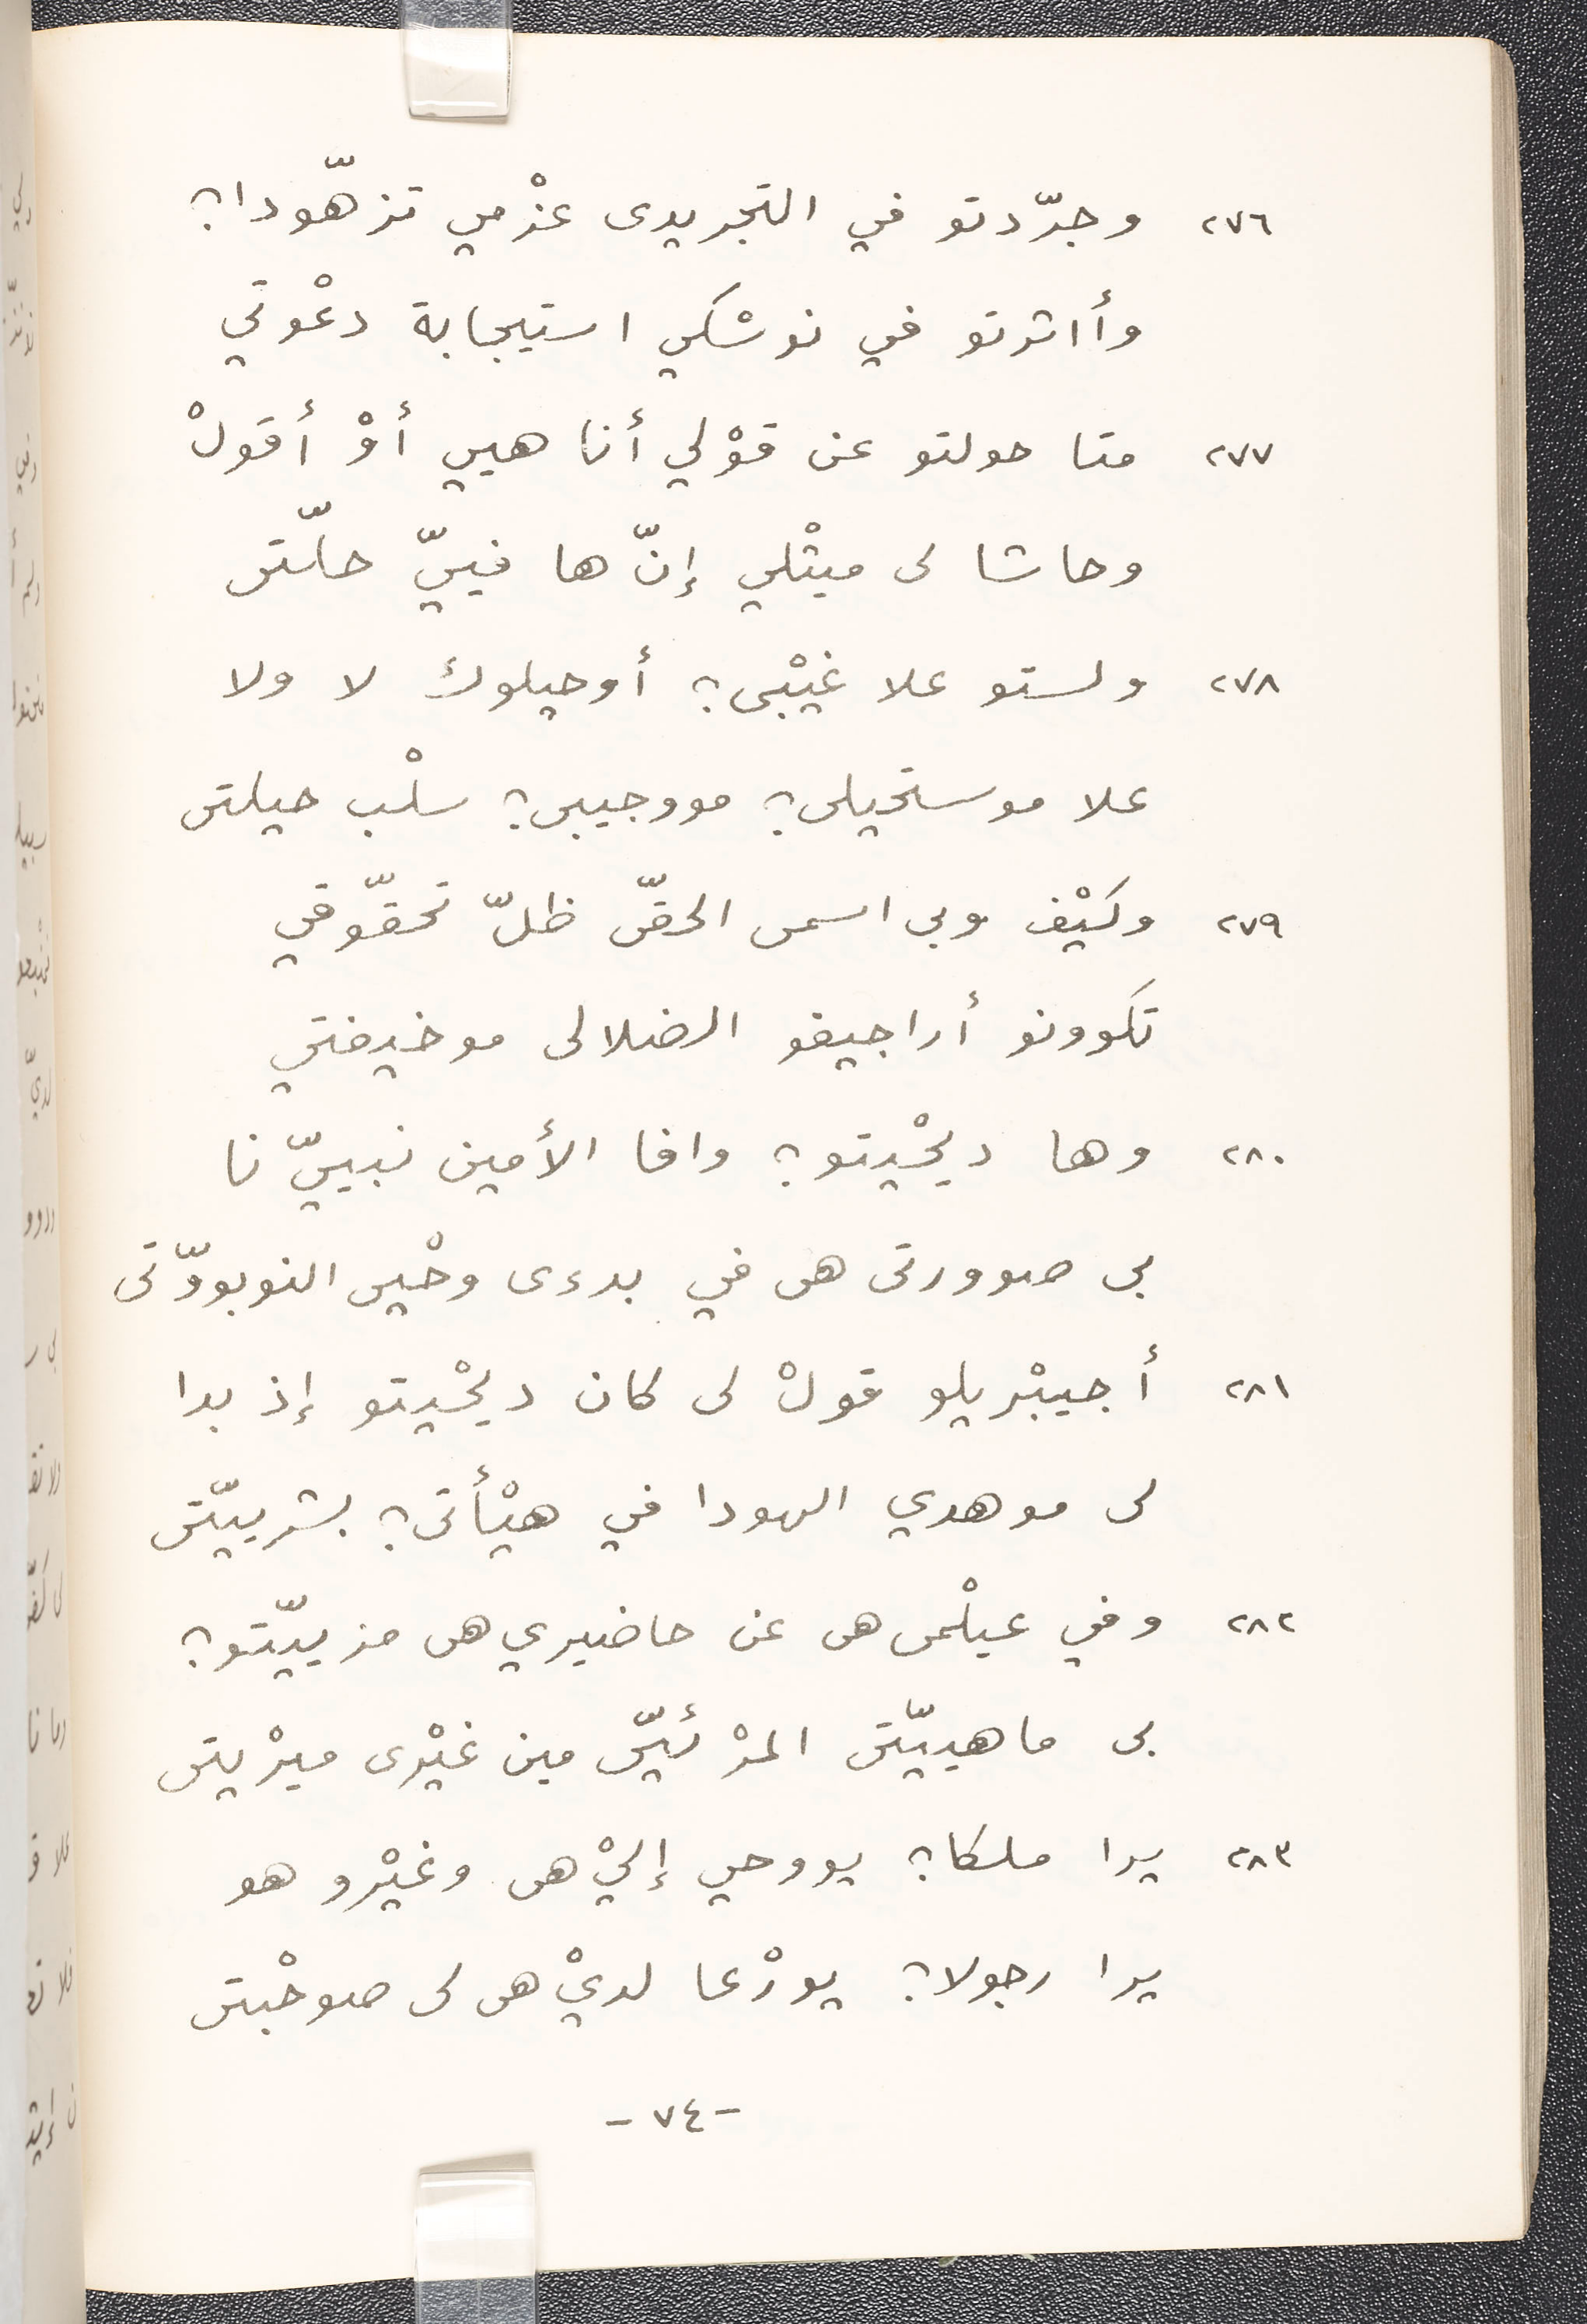 ٢٧٦ وجرّدتو في التجريدى عزْمي تزهّودا؟
وأاثرتو في نوسْكي استيجابة دعْوتي
٢٧٧ متا حولتو عن قوْلي أنا هيي أوْ أقولْ
وحاشا لى ميثْلي إنّها فييّ حلّتى
٢٧٨ ولستو علا غيْبى؟ أوحيلوك لا ولا
علا موستحيلى؟ مووجيبى؟ سلْب حيلتى
٢٧٩ وكيْف وبى اسمى الحقّى ظلّ تحقّوقي
تكوونو أراجيفو الضلالى موخيفتي
٢٨٠ وها ديحْيتو؟ وافا الأمين نبييّنا
بى صوورتى هى في بدءى وحْيى النوبووّتى
٢٨١ أجيبْريلو قولْ لى كان ديحْيتو إذ بدا
لى موهدي الهودا في هيْأتى؟ بشرييّتى
٢٨٢ وفي عيلْمى هى عن حاضيري هى مزييّتو؟
بى ماهييّتى المرْئيّى مين غيْرى ميرْيتى
٢٨٣ يرا ملكا؟ يووحي إليْ هى وغيْرو هو
يرا رجولا؟ يورْعا لديْ هى لى صوحْبتى
-٧٤-